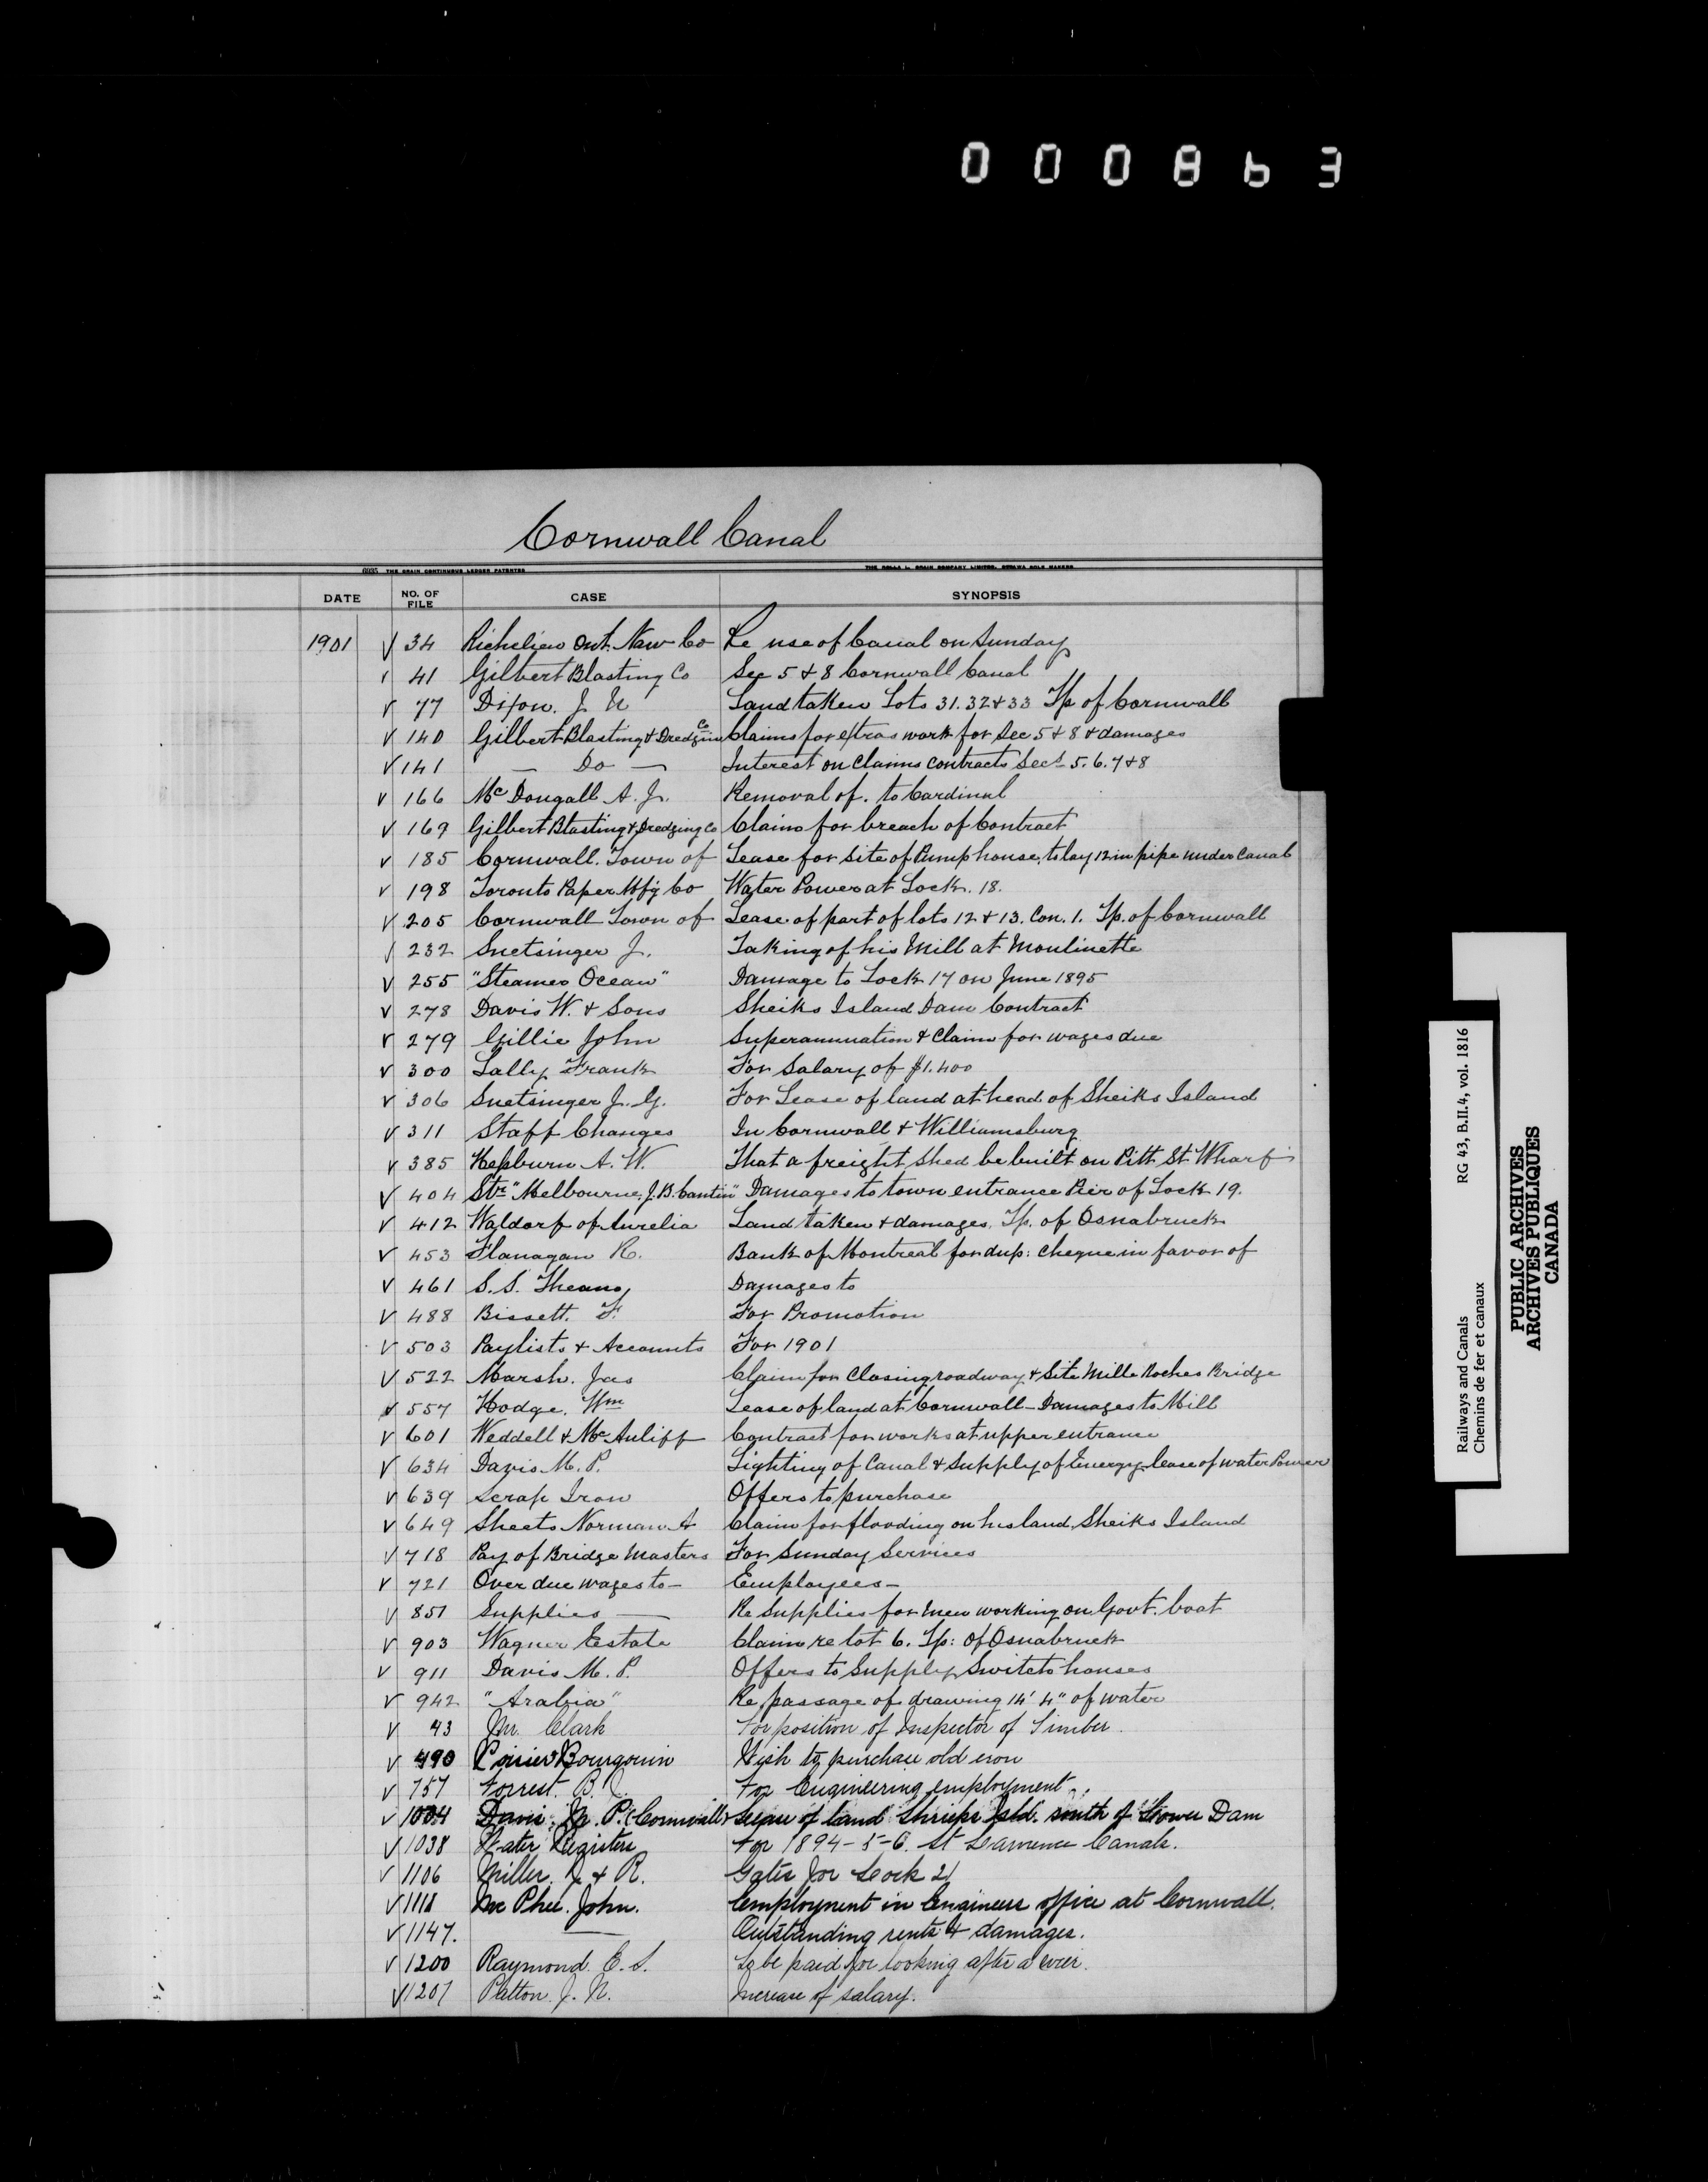 000863
Cornwall Canal
6935 THE BRAIN CONTINUOUS LEDGER PATENTED
DATE NO. OF FILE CASE SYNOPSIS
1901 √ 34 Richelieu Ont. Nav Co Re use of Canal on Sunday
√ 41 Gilbert Blasting Co Sec 5 & 8 Cornwall Canal
√ 77 Dixon. J. N Land taken Lots 31. 32 & 33 Tp of Cornwall
√ 140 Gilbert Blasting & Dredging Co Claims for extras work for Sec 5 & 8 & damages
√ 141 — Do — Interest on Claims contracts Secs 5. 6. 7 & 8
√ 166 Mc Dougall A. J. Removal of. to Cardinal
√ 169 Gilbert Blasting & Dredging Co Claim for breach of Contract
√ 185 Cornwall. Town of Lease for site of Pump house, to lay 12 in pipe under Canal
√ 198 Toronto Paper Mfg Co Water Power at Lock. 18.
√ 205 Cornwall Town of Lease of part of lots 12 & 13. Con. 1. Tp. of Cornwall
√ 232 Snetsinger J. Taking of his Mill at Moulinette
√ 255 "Steamer Ocean" Damage to Lock 17 on June 1895
√ 278 Davis W. & Sons Sheiks Island Dam Contract
√ 279 Gillie John Superannuation & Claim for wages due
√ 300 Lally Frank For Salary of $1.400
√ 306 Snetsinger J. G. For Lease of land at head of Sheiks Island
√ 311 Staff Changes In Cornwall & Williamsburg
√ 385 Hepburn A. W. That a freight shed be built on Pitt St Wharf
√ 404 Str "Melbourne, J. B. Cantin" Damages to town entrance Pier of Lock 19.
√ 412 Waldorf of Aurelia Land taken & damages. Tp. of Osnabruck
√ 453 Flanagan R. Bank of Montreal for dup: cheque in favor of
√ 461 S. S. Theano Damages to
√ 488 Bissett. F. For Promotion
√ 503 Paylists & Accounts For 1901
√ 522 Marsh. Jas Claim for Closing roadway & Site Mille Roches Bridge
√ 557 Hodge. Wm Lease of land at Cornwall – Damages to Mill
√ 601 Weddell & Mc Auliff Contract for works at upper entrance
√ 634 Davis M. P. Lighting of Canal & Supply of Energy lease of water Power
√ 639 Scrap Iron Offers to purchase
√ 649 Sheets Norman A Claim for flooding on his land, Sheiks Island
√ 718 Pay of Bridge Masters For Sunday Services
√ 721 Over due wages to – Employees –
√ 851 Supplies — Re Supplies for men working on Govt. boat
√ 903 Wagner Estate Claim re lot 6. Tp: of Osnabruck
√ 911 Davis M. P. Offers to Supply Switch houses
√ 942 "Arabia" Re passage of drawing 14' 4" of water
√ 43 Clark For position of Inspector of Timber.
√ 490 Poirier & Bourgouin Wish to purchase old iron
√ 757 Forrest. B. For Engineering employment.
√ 1034 Davis. M. P. (Cornwall) Lease of land Shieks Isld. south of Lower Dam
√ 1038 Water Registers For 1894-5-6. St Lawrence Canals.
√ 1106 Miller. & R. Gates for Lock 21
√ 1118 Mc Phee. John. Employment in Engineers office at Cornwall.
√ 1147. — Outstanding rents & damages.
√ 1200 Raymond. E. S. To be paid for looking after a weir.
√ 1207 Patton. J. N. Increase of salary.
Railways and Canals RG 43, B.II.4, vol. 1816
Chemins de fer et canaux
PUBLIC ARCHIVES
ARCHIVES PUBLIQUES
CANADA